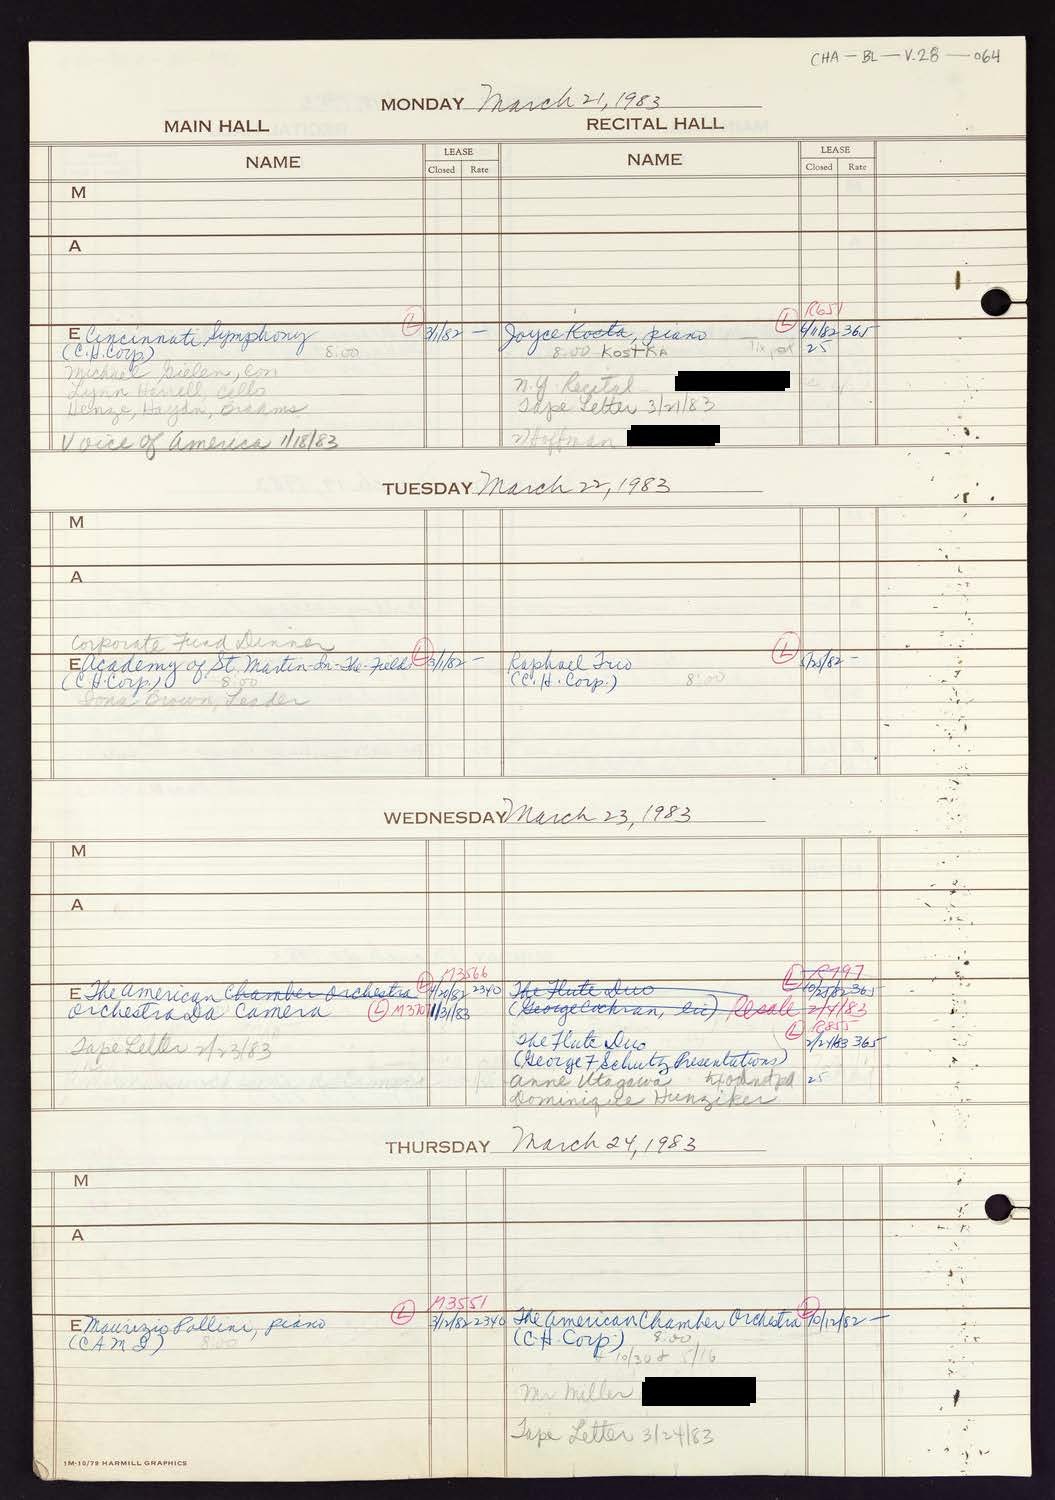 CHA-BL-V.28-064
MONDAY March 21, 1983
MAIN HALL
RECITAL HALL
NAME
LEASE
Closed Rate
NAME
LEASE
Closed Rate
M
A
R651
E Cincinnati Symphony L 3/1/82 -
(C.H.Corp) 8:00
Michael Gielen, Con
Lynn Harrell, cello
Henze, Haydn, Brahms
Voice of America 1/18/83
Joyce Kocta, piano L 6/11/82 365
8:00 KostKA 25
N.Y. Recital
Tape Letter 3/21/83
Hoffman
TUESDAY March 22, 1983
M
A
Corporate Fund Dinner
E Academy of St. Martin-In-The-Fields L 3/1/82 -
(C.H.Corp.) 8:00
Iona Brown, Leader
Raphael Trio L 5/25/82 -
(C.H.Corp.) 8:00
WEDNESDAY March 23, 1983
M
A
M3566
E The American Chamber Orchestra L 4/20/82 2340
Orchestra Da Camera L M3707 1/31/83
Tape Letter 2/23/83
L R797
The Flute Duo 10/25/82 365
(George Cochran, lic) Resale 2/4/83
L R855
The Flute Duo 2/24/83 365
(George F Schutz Presentations)
Anne Utagawa 25
Dominique Hunziker
THURSDAY March 24, 1983
M
A
M3551
E Maurizio Pollini, piano L 3/12/82 2340
(CAMI) 8:00
The American Chamber Orchestra L 10/12/82 -
(C.H. Corp) 8:00
10/30 & 5/16
Mr Miller
Tape Letter 3/24/83
1M-10/79 HARMILL GRAPHICS